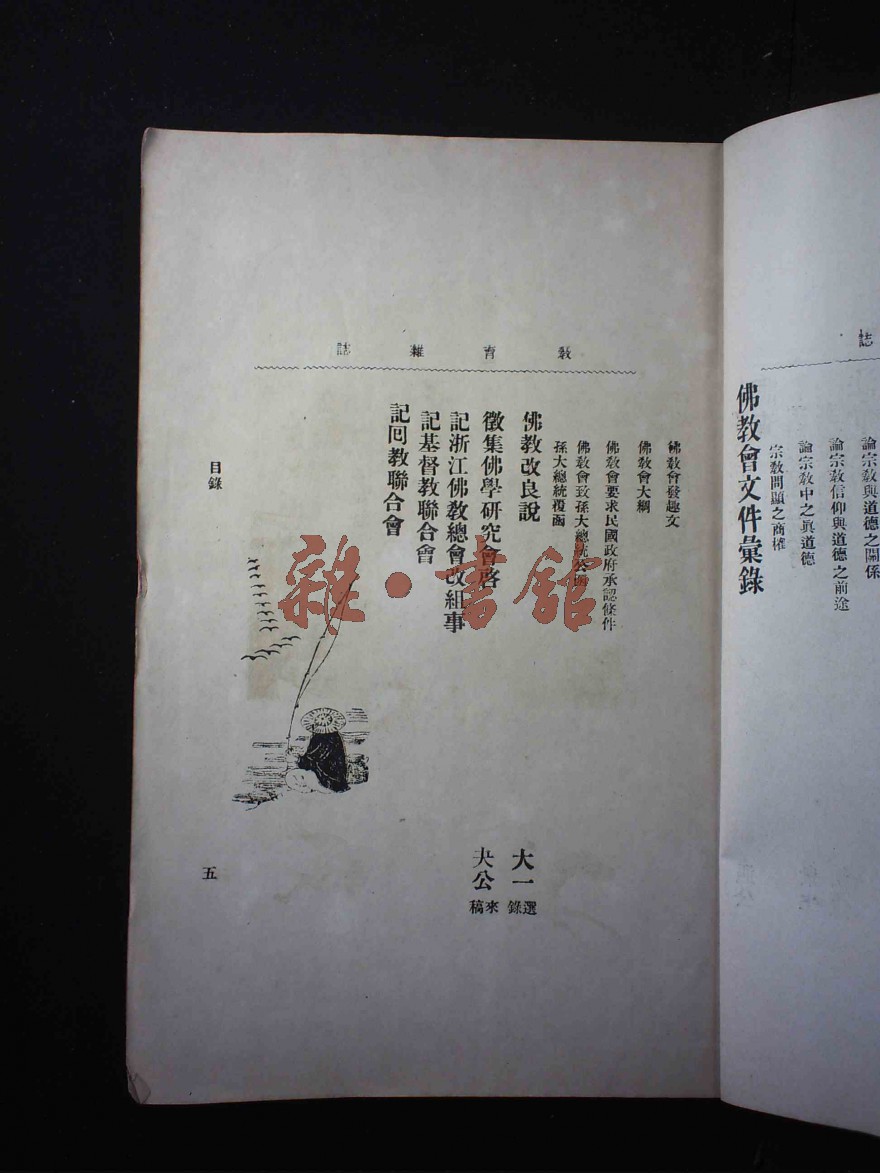 誌
論宗教與道德之關係
論宗教信仰與道德之前途
論宗教中之眞道德
宗教問題之商榷
佛教會文件彙錄
教育雜誌
佛教會發趣文
佛教會大綱
佛教會要求民國政府承認條件
佛教會致孫大總統公函
孫大總統覆函
佛教改良說
大一 選錄
徵集佛學研究會啓
太公 來稿
記浙江佛教總會改組事
記基督教聯合會
記回教聯合會
目錄
五
雜·書館